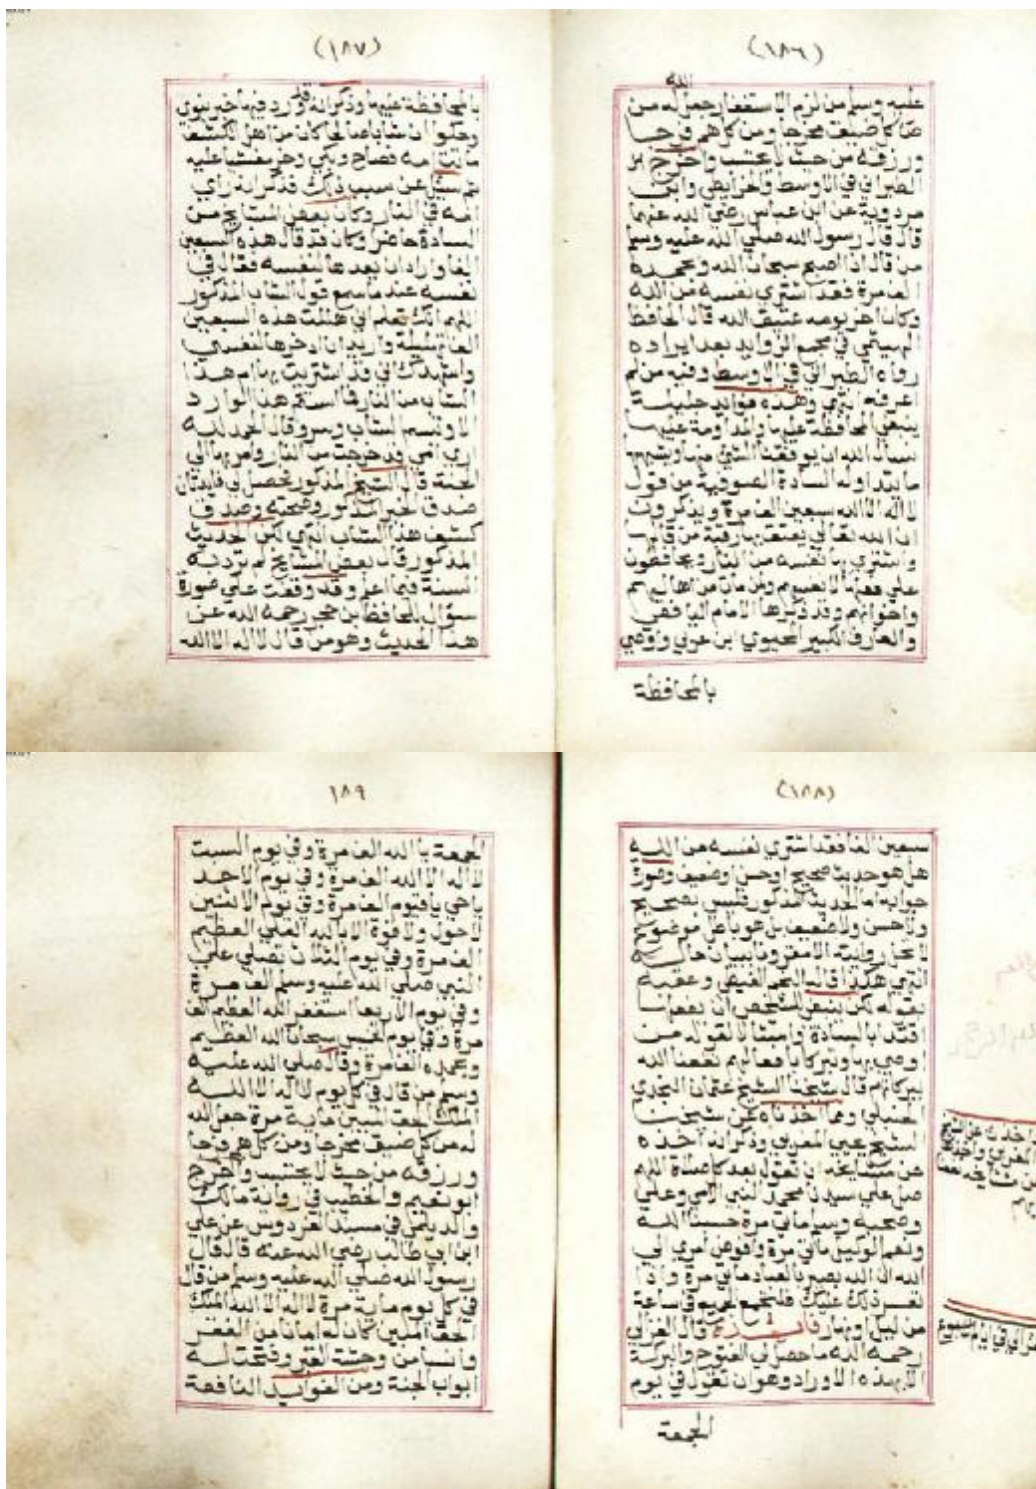 (١٨٦)
الله
عليه وسلم من لزم الاستغفار جعل له من
كل ضيق مخرجا ومن كل هم فرجا
ورزقه من حيث لا يحتسب واخرج
الطبراني في الاوسط والخرايطي وابن
مردوية عن ابن عباس رضي الله عنهما
قال قال رسول الله صلي الله عليه وسلم
من قال اذا اصبح سبحان الله وبحمده
الف مرة فقد اشتري نفسه من الله
وكان اخر يومه عتيق الله قال الحافظ
الهيتمي في مجمع الزوايد بعد ايراده
رواه الطبراني في الاوسط وفيه من لم
اعرفه انتهي وهذه فوايد جليلة
ينبغي المحافظة عليها والمداومة عليها
نسال الله ان يوفقنا انتهي
ما يتداوله السادة الصوفية من قول
لا اله الا الله سبعين الف مرة ويذكرون
ان الله تعالي يعتق بها رقبة من قالها
واشتري بها نفسه من النار ويحافظون
علي فعلها لانفسهم ولمن مات من اهاليهم
واخوانهم وقد ذكرها الامام اليافعي
والعارف الكبير المحيوي ابن عربي واوصي
بالمحافظة
(١٨٧)
بالمحافظة عليها وذكر انه قد ورد فيها خبر نبوي
وحكوا ان شابا صالحا كان من اهل الكشف
ماتت امه فصاح وبكي وخر مغشيا عليه
ثم سيل عن سبب ذلك فذكر انه راي
امه في النار وكان بعض المشايخ من
السادة حاضر وكان قد قال هذه السبعين
الفا واراد ان يعدها لنفسه فقال في
نفسه عند ما سمع قول الشاب المذكور
اللهم انك تعلم اني هللت هذه السبعين
الف تهليلة واريد ان ادخرها لنفسي
واشهدك اني قد اشتريت بها ام هذا
الشاب من النار فما استتم هذا الوارد
الا وتبسم الشاب وسر وقال الحمد لله
اري امي قد خرجت من النار وامر بها الي
الجنة قال الشيخ المذكور فحصل لي فايدتان
صدق الخبر المذكور وصحته وصدق
كشف هذا الشاب انتهي لكن الحديث
المذكور قال بعض المشايخ لم ترد به
السنة فيما اعلم وقد وقفت علي صورة
سؤال للحافظ ابن حجر رحمه الله عن
هذا الحديث وهو من قال لا اله الا الله
(١٨٨)
سبعين الفا فقد اشتري نفسه من الله
هل هو حديث صحيح او حسن او ضعيف وصورة
جوابه اما الحديث المذكور فليس بصحيح
ولا حسن ولا ضعيف بل هو باطل موضوع
لا تحل روايته الا مقرونا ببيان حاله
انتهي هكذا قاله النجم الغيطي وعقبه
بقوله لكن ينبغي للشخص ان يفعلها
اقتدا بالسادة وامتثالا لقول من
اوصي بها وتبركا بافعالهم نفعنا الله
ببركاتهم قال شيخنا الشيخ عثمان النجدي
الحنبلي ومما اخذناه عن شيخنا
الشيخ يحيي المغربي وذكر انه اخذه
عن مشايخه ان تقول بعد كل صلاة اللهم
صل علي سيدنا محمد النبي الامي وعلي
وصحبه وسلم ماتي مرة حسبنا الله
ونعم الوكيل ماتي مرة وافوض امري الي
الله ان الله بصير بالعباد ماتي مرة واذا
تعسر ذلك عليك فلتجمع الجميع في ساعة
من ليل او نهار فايدة قال الغزالي
رحمه الله ما حصل لي الفتوح والبركة
الا بهذه الاوراد وهو ان تقول في يوم
الجمعة
١٨٩
الجمعة يا الله الف مرة وفي يوم السبت
لا اله الا الله الف مرة وفي يوم الاحد
يا حي يا قيوم الف مرة وفي يوم الاثنين
لا حول ولا قوة الا بالله العلي العظيم
الف مرة وفي يوم الثلاث تصلي علي
النبي صلي الله عليه وسلم الف مرة
وفي يوم الاربعا استغفر الله العظيم الف
مرة وفي يوم الخميس سبحان الله العظيم
وبحمده الف مرة وقال صلي الله عليه
وسلم من قال في كل يوم لا اله الا الله
الملك الحق المبين ماية مرة جعل الله
له من كل ضيق مخرجا ومن كل هم فرجا
ورزقه من حيث لا يحتسب واخرج
ابو نعيم والخطيب في رواية مالك
والديلمي في مسند الفردوس عن علي
ابن ابي طالب رضي الله عنه قال قال
رسول الله صلي الله عليه وسلم من قال
في كل يوم ماية مرة لا اله الا الله الملك
الحق المبين كان له امانا من الفقر
وانسا من وحشة القبر وفتحت له
ابواب الجنة ومن الفوايد النافعة